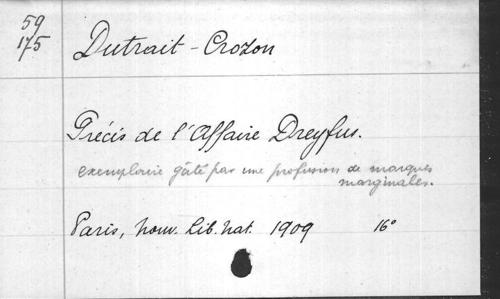 59
175
Dutrait-Crozon
Précis de l'Affaire Dreyfus.
exemplaire gâté par une profusion de marques
marginales.
Paris, nouv. Lib. nat. 1909 16°